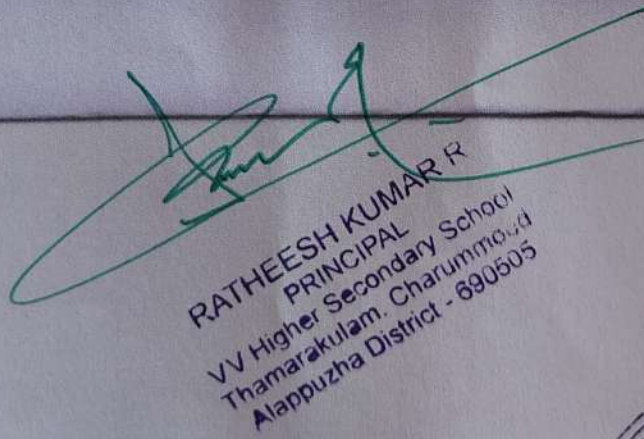 RATHEESH KUMAR R
PRINCIPAL
VV Higher Secondary School
Thamarakulam. Charummood
Alappuzha District - 690505